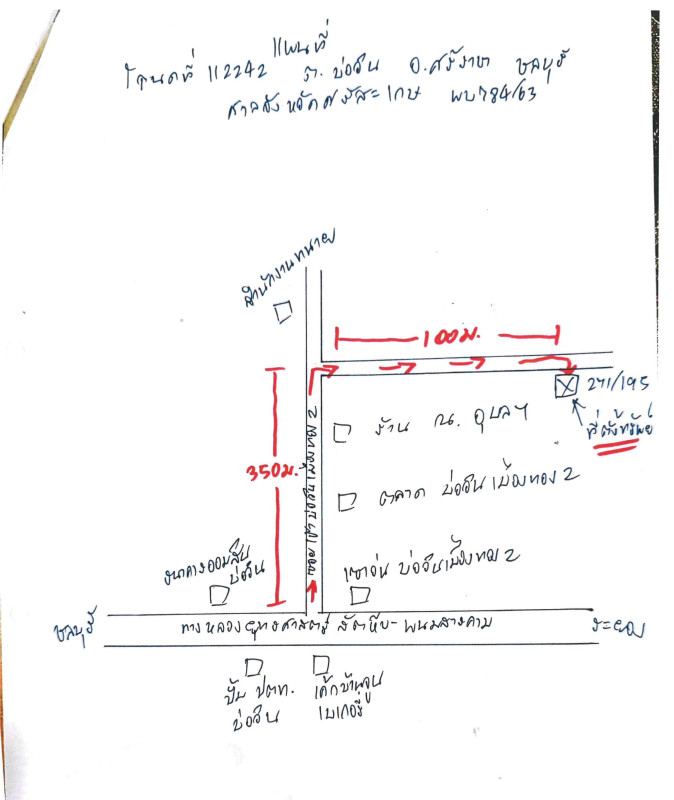 แผนที่
โฉนดที่ 112242 ต. บ่อวิน อ.ศรีราชา ชลบุรี
ศาลจังหวัดศรีสะเกษ ผบ784/63
สำนักงานทนาย
100ม.
271/195
ที่ตั้งทรัพย์
ร้าน ณ. อุบลฯ
350ม.
ซอยเข้าบ่อวินเมืองทอง 2
ตลาด บ่อวินเมืองทอง 2
ธนาคารออมสิน
บ่อวิน
เซเว่น บ่อวินเมืองทอง 2
ชลบุรี
ทางหลวงยุทธศาสตร์ สัตหีบ-พนมสารคาม
ระยอง
ปั๊ม ปตท.
บ่อวิน
เค้กบ้านจูน
เบเกอรี่